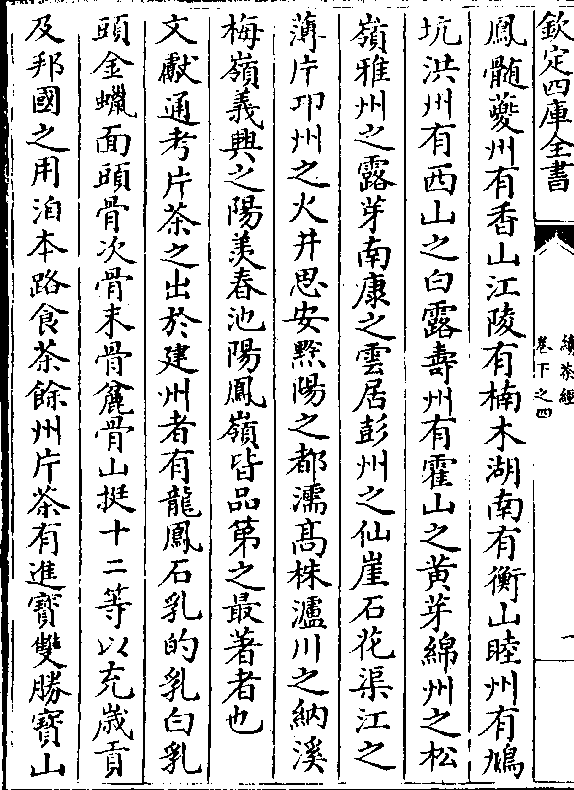 欽定四庫全書
續茶經
卷下之四
一
鳳髓夔州有香山江陵有楠木湖南有衡山睦州有鳩
坑洪州有西山之白露壽州有霍山之黄芽綿州之松
嶺雅州之露芽南康之雲居彭州之仙崖石花渠江之
薄片卭州之火井思安黔陽之都濡髙株瀘川之納溪
梅嶺義興之陽羨春池陽鳳嶺皆品第之最著者也
文獻通考片茶之出於建州者有龍鳳石乳的乳白乳
頭金蠟面頭骨次骨末骨麄骨山挺十二等以充歳貢
及邦國之用洎本路食茶餘州片茶有進寳雙勝寳山